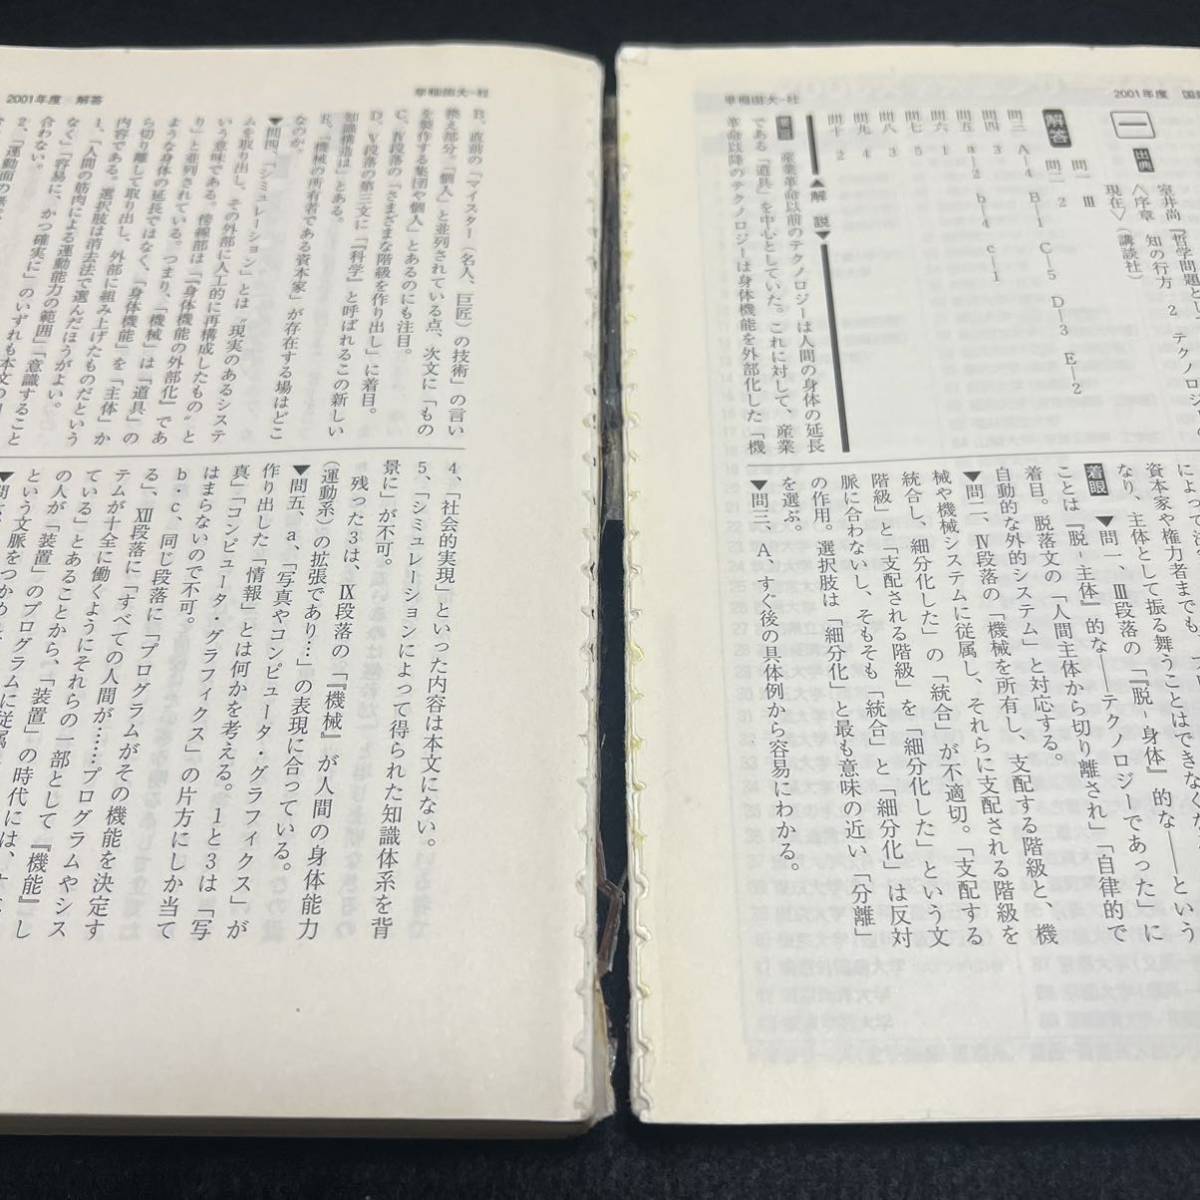 早稲田大-社
2001年度
一
出典
室井尚『哲学問題とし
〈序章 知の行方 2 テクノロジ
現在〉(講談社)
解答
問一 Ⅲ
問二 2
問三 A―4 B―1 C―5 D―3 E―2
問四 3
問五 a―2 b―4 c―1
問六 1
問七 5
問八 3
問九 4
問十 2
▲解 説▼
産業革命以前のテクノロジーは人間の身体の延長
である「道具」を中心としていた。これに対して、産業
革命以降のテクノロジーは身体機能を外部化した「機
資本家や権力者までも、
なり、主体として振る舞うことはできなくな
着眼 ▼問一、Ⅲ段落の「『脱-身体』的な――という
ことは『脱-主体』的な――テクノロジーであった」に
着目。脱落文の「人間主体から切り離され」「自律的で
自動的な外的システム」と対応する。
▼問二、Ⅳ段落の「機械を所有し、支配する階級と、機
械や機械システムに従属し、それらに支配される階級を
統合し、細分化した」の「統合」が不適切。「支配する
階級」と「支配される階級」を「細分化した」という文
脈に合わないし、そもそも「統合」と「細分化」は反対
の作用。選択肢は「細分化」と最も意味の近い「分離」
を選ぶ。
▼問三、A、すぐ後の具体例から容易にわかる。
早稲田大-社
2001年度 解答
B、直前の「マイスター(名人、巨匠)の技術」の言い
換え部分。「職人」と並列されている点、次文に「もの
を製作する集団や個人」とあるのにも注目。
C、Ⅳ段落の「さまざまな階級を作り出し」に着目。
D、Ⅴ段落の第三文に「『科学』と呼ばれるこの新しい
知識構造は」とある。
E、「機械の所有者である資本家」が存在する場はどこ
なのか。
▼問四、「シミュレーション」とは“現実のあるシステ
ムを取り出し、その外部に人工的に再構成したもの”と
いう意味である。傍線部は「『身体機能の外部化』であ
り」と並列されている。つまり、「機械」は「道具」の
ような身体の延長ではなく、「身体機能」を「主体」か
ら切り離して取り出し、外部に組み上げたものだという
内容である。選択肢は消去法で選んだほうがよい。
1、「人間の筋肉による運動能力の範囲」「意識すること
なく」「容易に、かつ確実に」のいずれも本文の
合わない。
2、「運動面の
4、「社会的実現」といった内容は本文にない。
5、「シミュレーションによって得られた知識体系を背
景に」が不可。
残った3は、Ⅸ段落の「『機械』が人間の身体能力
(運動系)の拡張であり…」の表現に合っている。
▼問五、a、「写真やコンピュータ・グラフィクス」が
作り出した「情報」とは何かを考える。1と3は「写
真」「コンピュータ・グラフィクス」の片方にしか当て
はまらないので不可。
b・c、同じ段落に「プログラムがその機能を決定す
る」、Ⅻ段落に「すべての人間が……プログラムやシス
テムが十全に働くようにそれらの一部として『機能』し
ている」とあることから、「装置」の時代には、
の人が「装置」のプログラムに従属
という文脈をつかめ